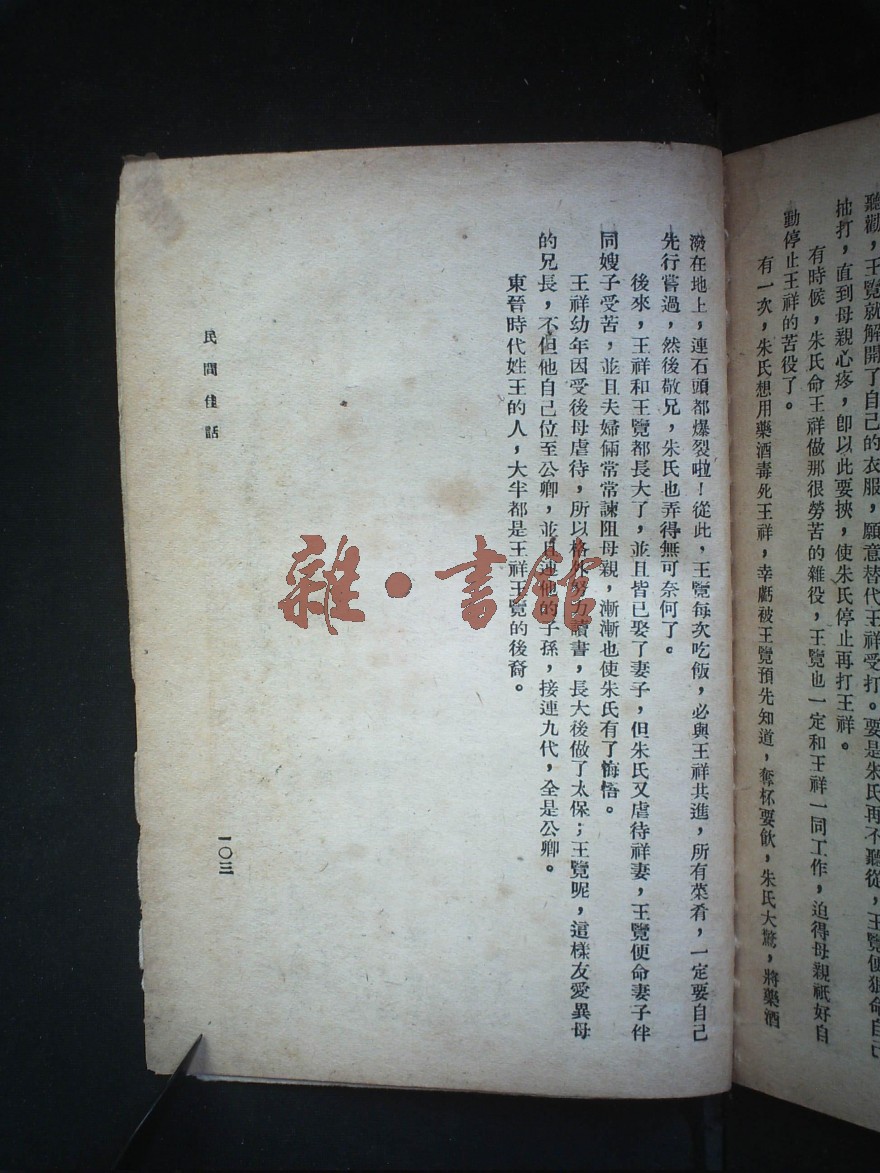 聽勸，王覽就解開了自己的衣服，願意替代王祥受打。要是朱氏再不聽從，王覽便狠命自己
抽打，直到母親心疼，卽以此要挾，使朱氏停止再打王祥。
有時候，朱氏命王祥做那很勞苦的雜役，王覽也一定和王祥一同工作，迫得母親祇好自
動停止王祥的苦役了。
有一次，朱氏想用藥酒毒死王祥，幸虧被王覽預先知道，奪杯要飲，朱氏大驚，將藥酒
潑在地上，連石頭都爆裂啦！從此，王覽每次吃飯，必與王祥共進，所有菜肴，一定要自己
先行嘗過，然後敬兄，朱氏也弄得無可奈何了。
後來，王祥和王覽都長大了，並且皆已娶了妻子，但朱氏又虐待祥妻，王覽便命妻子伴
同嫂子受苦，並且夫婦倆常常諫阻母親，漸漸也使朱氏有了悔悟。
王祥幼年因受後母虐待，所以格外努力讀書，長大後做了太保；王覽呢，這樣友愛異母
的兄長，不但他自己位至公卿，並且連他的子孫，接連九代，全是公卿。
東晉時代姓王的人，大半都是王祥王覽的後裔。
民間佳話
一〇三
雜·書館